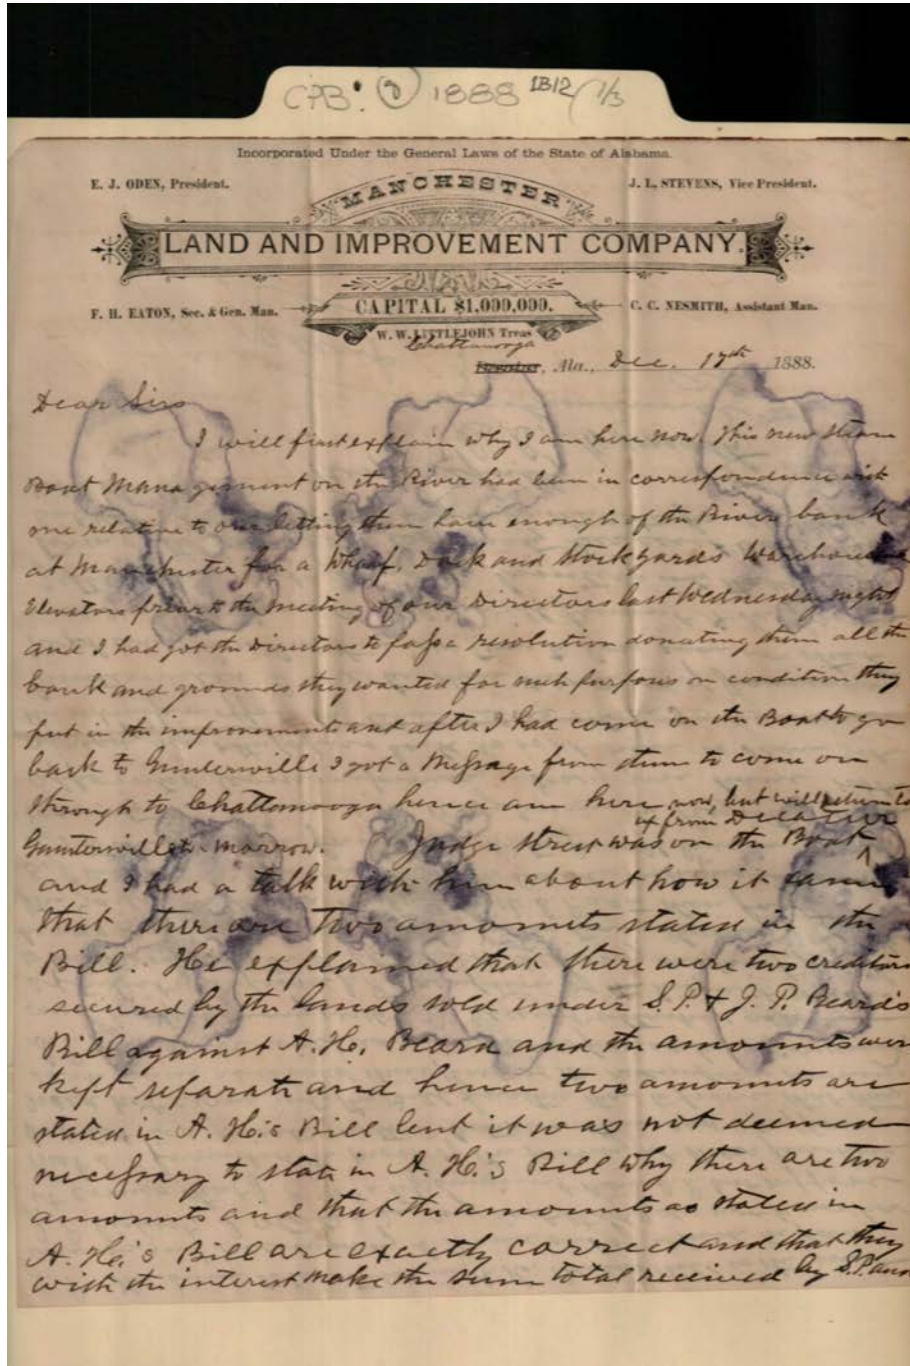 CPB: 1888 1B12 (1/3
Incorporated Under the General Laws of the State of Alabama.
E. J. ODEN, President.
J. L. STEVENS, Vice President.
MANCHESTER
LAND AND IMPROVEMENT COMPANY.
F. H. EATON, Sec. & Gen. Man.
CAPITAL $1,000,000.
C. C. NESMITH, Assistant Man.
W. W. LITTLEJOHN Treas
Chattanooga
, Ala., Dec. 17th 1888.
Dear Sirs
I will first explain why I am here now. This new Steam
Boat Management on the River had been in correspondence with
me relative to our letting them have enough of the River bank
at Manchester for a Wharf, Dock and Stockyards Warehouse
Elevators prior to the meeting of our Directors last Wednesday night
and I had got the Directors to pass a resolution donating them all the
bank and grounds they wanted for such purposes on condition they
put in the improvements and after I had come on the Boat to go
back to Guntersville I got a Message from them to come on
through to Chattanooga hence am here now, but will return to
Guntersville to morrow. Judge Street was on the Boat
up from Decatur
and I had a talk with him about how it came
that there are two amounts stated in the
Bill. He explained that there were two creditors
secured by the lands sold under S. P. & J. P. Beard's
Bill against A. H. Beard and the amounts were
kept separate and hence two amounts are
stated in A. H.'s Bill but it was not deemed
necessary to state in A. H.'s Bill why there are two
amounts and that the amounts as stated in
A. H.'s Bill are exactly correct and that they
with the interest make the sum total received by S. P. and